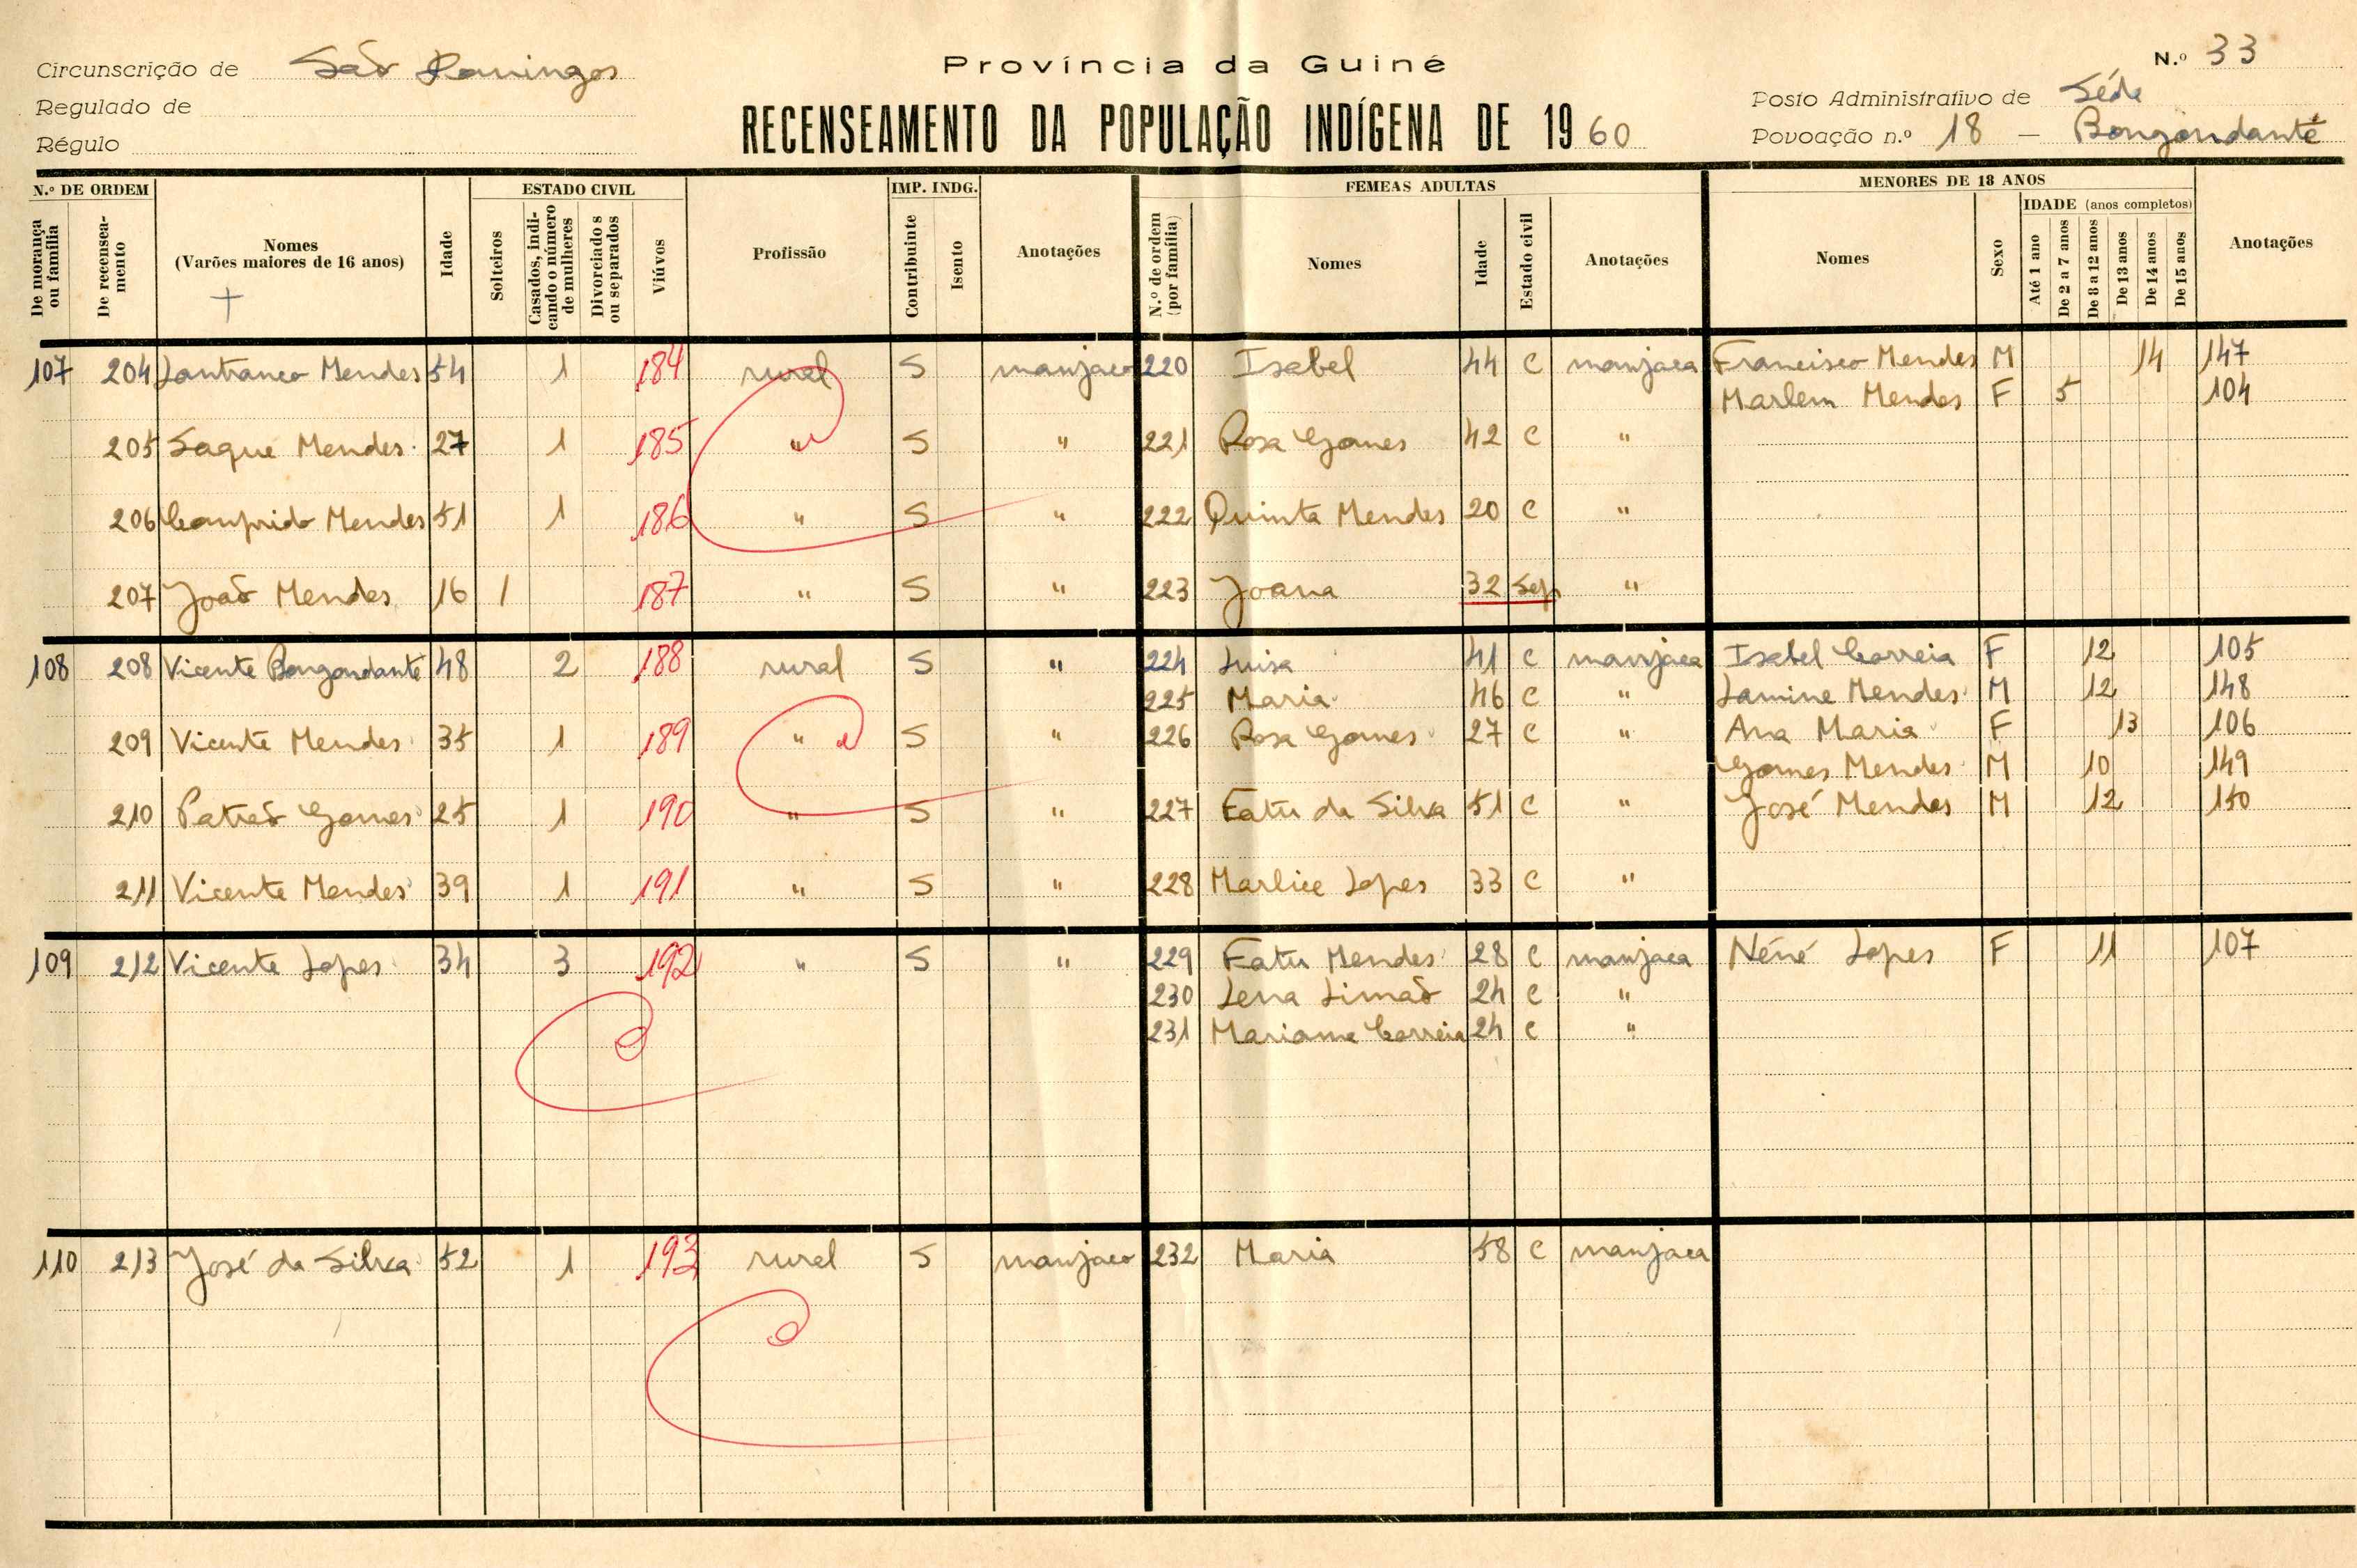 Circunscrição de São Domingos
Regulado de
Régulo
Província da Guiné
RECENSEAMENTO DA POPULAÇÃO INDÍGENA DE 1960
N.º 33
Posto Administrativo de Séde
Povoação n.º 18 — Bongondanté
N.º DE ORDEM
De morança ou família
De recenseamento
Nomes
(Varões maiores de 16 anos)
Idade
ESTADO CIVIL
Solteiros
Casados, indicando o número de mulheres
Divorciados ou separados
Viúvos
Profissão
IMP. INDG.
Contribuinte
Isento
Anotações
FEMEAS ADULTAS
N.º de ordem (por família)
Nomes
Idade
Estado civil
Anotações
MENORES DE 18 ANOS
Nomes
Sexo
IDADE (anos completos)
Até 1 ano
De 2 a 7 anos
De 8 a 12 anos
De 13 anos
De 14 anos
De 15 anos
Anotações
107 204 Lantranco Mendes 54 1 184 rural S manjaco 220 Isabel 44 C manjaca Francisco Mendes M 14 147
Marlem Mendes F 5 104
205 Saque Mendes 27 1 185 " S " 221 Rosa Gomes 42 C "
206 Mendes 51 1 186 " S " 222 Quinta Mendes 20 C "
207 João Mendes 16 1 187 " S " 223 Joana 32 Sep. "
108 208 Vicente Bongondante 48 2 188 rural S " 224 Luisa 41 C manjaca Isabel Correia F 12 105
225 Maria 46 C " Lamine Mendes M 12 148
209 Vicente Mendes 35 1 189 " S " 226 Rosa Gomes 27 C " Ana Maria F 13 106
Gomes Mendes M 10 149
210 Patrão Gomes 25 1 190 " S " 227 Fatu da Silva 51 C " José Mendes M 12 150
211 Vicente Mendes 39 1 191 " S " 228 Marlice Lopes 33 C "
109 212 Vicente Lopes 34 3 192 " S " 229 Fatu Mendes 28 C manjaca Néné Lopes F 11 107
230 Lena Limão 24 C "
231 Mariama Correia 24 C "
110 213 José da Silva 52 1 193 rural S manjaco 232 Maria 58 C manjaca